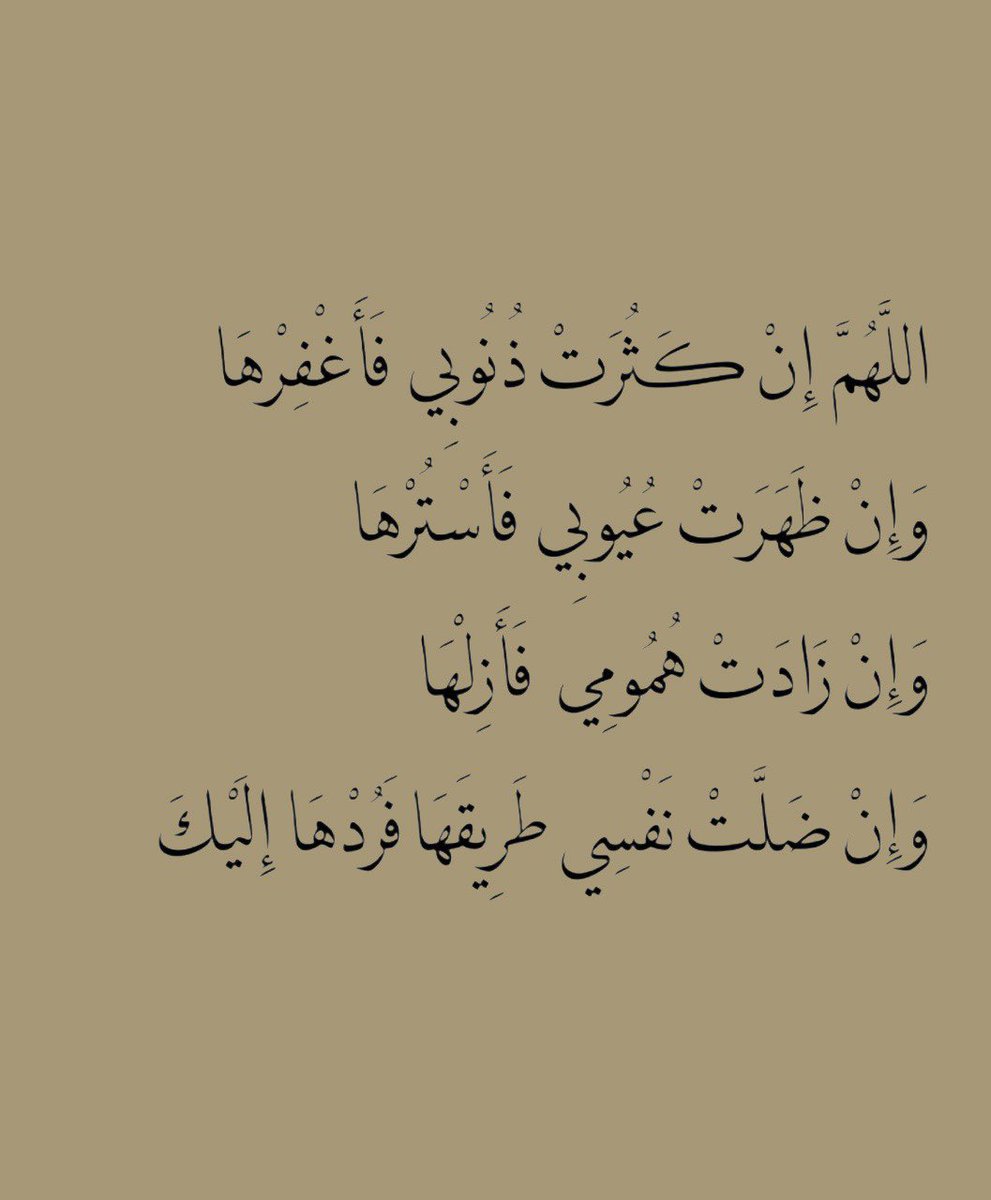 اللَّهُمَّ إِنْ كَثُرَتْ ذُنُوبِي فَأَغْفِرْهَا
وَإِنْ ظَهَرَتْ عُيُوبِي فَأَسْتُرْهَا
وَإِنْ زَادَتْ هُمُومِي فَأَزِلْهَا
وَإِنْ ضَلَّتْ نَفْسِي طَرِيقَهَا فَرُدْهَا إِلَيْكَ